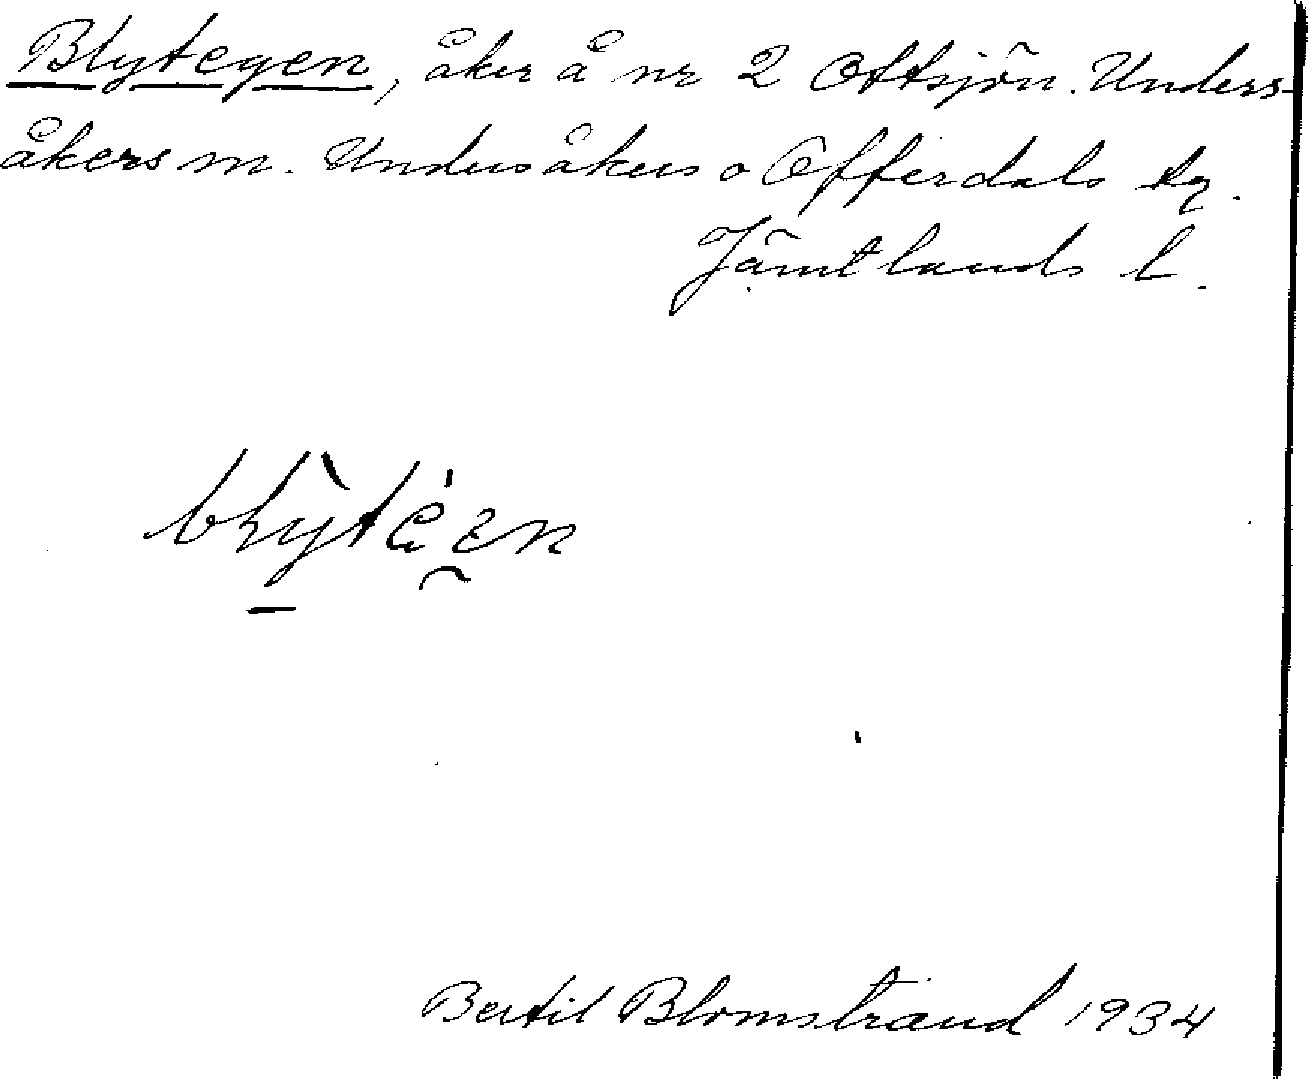 Blytegen, åker å nr 2 Ottsjön. Unders-
åkers sn. Undersåkers o Offerdals tg.
Jämtlands l.
blytegen
Bertil Blomstrand 1934